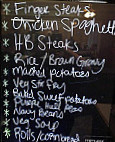 * Finger Steaks
* Chicken Spaghetti
* HB Steaks
* Rice / Brown Gravy
* Mashed potatoes
* Veg Stir fry
* Baked Sweet Potatoes
* Purple Hull Peas
* Navy Beans
* Veg Soup
* Rolls/cornbread